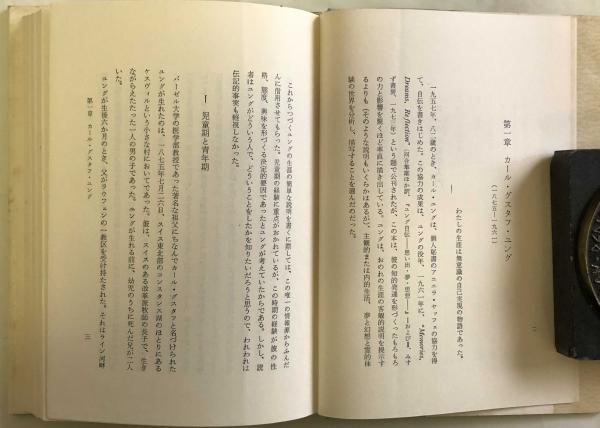 第一章 カール・グスタフ・ユング
(一八七五―一九六一)
わたしの生涯は無意識の自己実現の物語であった。
一九五七年、八二歳のとき、カール・ユングは、個人秘書のアニエラ・ヤッフェの協力を得
て、自伝を書きはじめた。この協力の成果は、ユングの没年、一九六一年に、"Memories,
Dreams, Reflection"(河合隼雄ほか訳、『ユング自伝――思い出・夢・思想――』ⅠおよびⅡ、みす
ず書房、一九七二年)という題で公刊されたが、この本は、彼の知的発達を形づくったもろもろ
の力と影響を驚くほど率直に描き出している。ユングは、おのれの生涯の客観的説明を提示す
るよりも(そのような説明もいくらかはあるが)、主観的または内的生活、 夢と幻想と霊的体
験の世界を分析し、描写することを選んだのだった。
二
これからつづくユングの生涯の簡単な説明を書くに際しては、この唯一の情報源からふんだ
んに借用させてもらった。児童期の経験に重点がおかれているが、この時期の経験が彼の性
格、態度、興味を形づくる決定的要因であったとユングが考えていたからである。しかし、読
者はユングがどういう人で、どういうことをしたかを知りたいだろうと思うので、われわれは
伝記的事実も軽視しなかった。
Ⅰ 児童期と青年期
バーゼル大学の医学部教授であった著名な祖父にちなんでカール・グスタフと名づけられた
ユングが生れたのは、一八七五年七月二六日、スイス東北部のコンスタンス湖のほとりにある
ケスヴィルという小さな村においてであった。彼は、スイスのある改革派牧師の長子で、生き
ながらえたたった一人の男の子であった。ユングが生れる前に、幼児のうちに死んだ兄が二人
いた。
ユングが生後六か月のとき、父がラウフェンの一教区を受け持たされた。それはライン河畔
第一章 カール・グスタフ・ユング
三